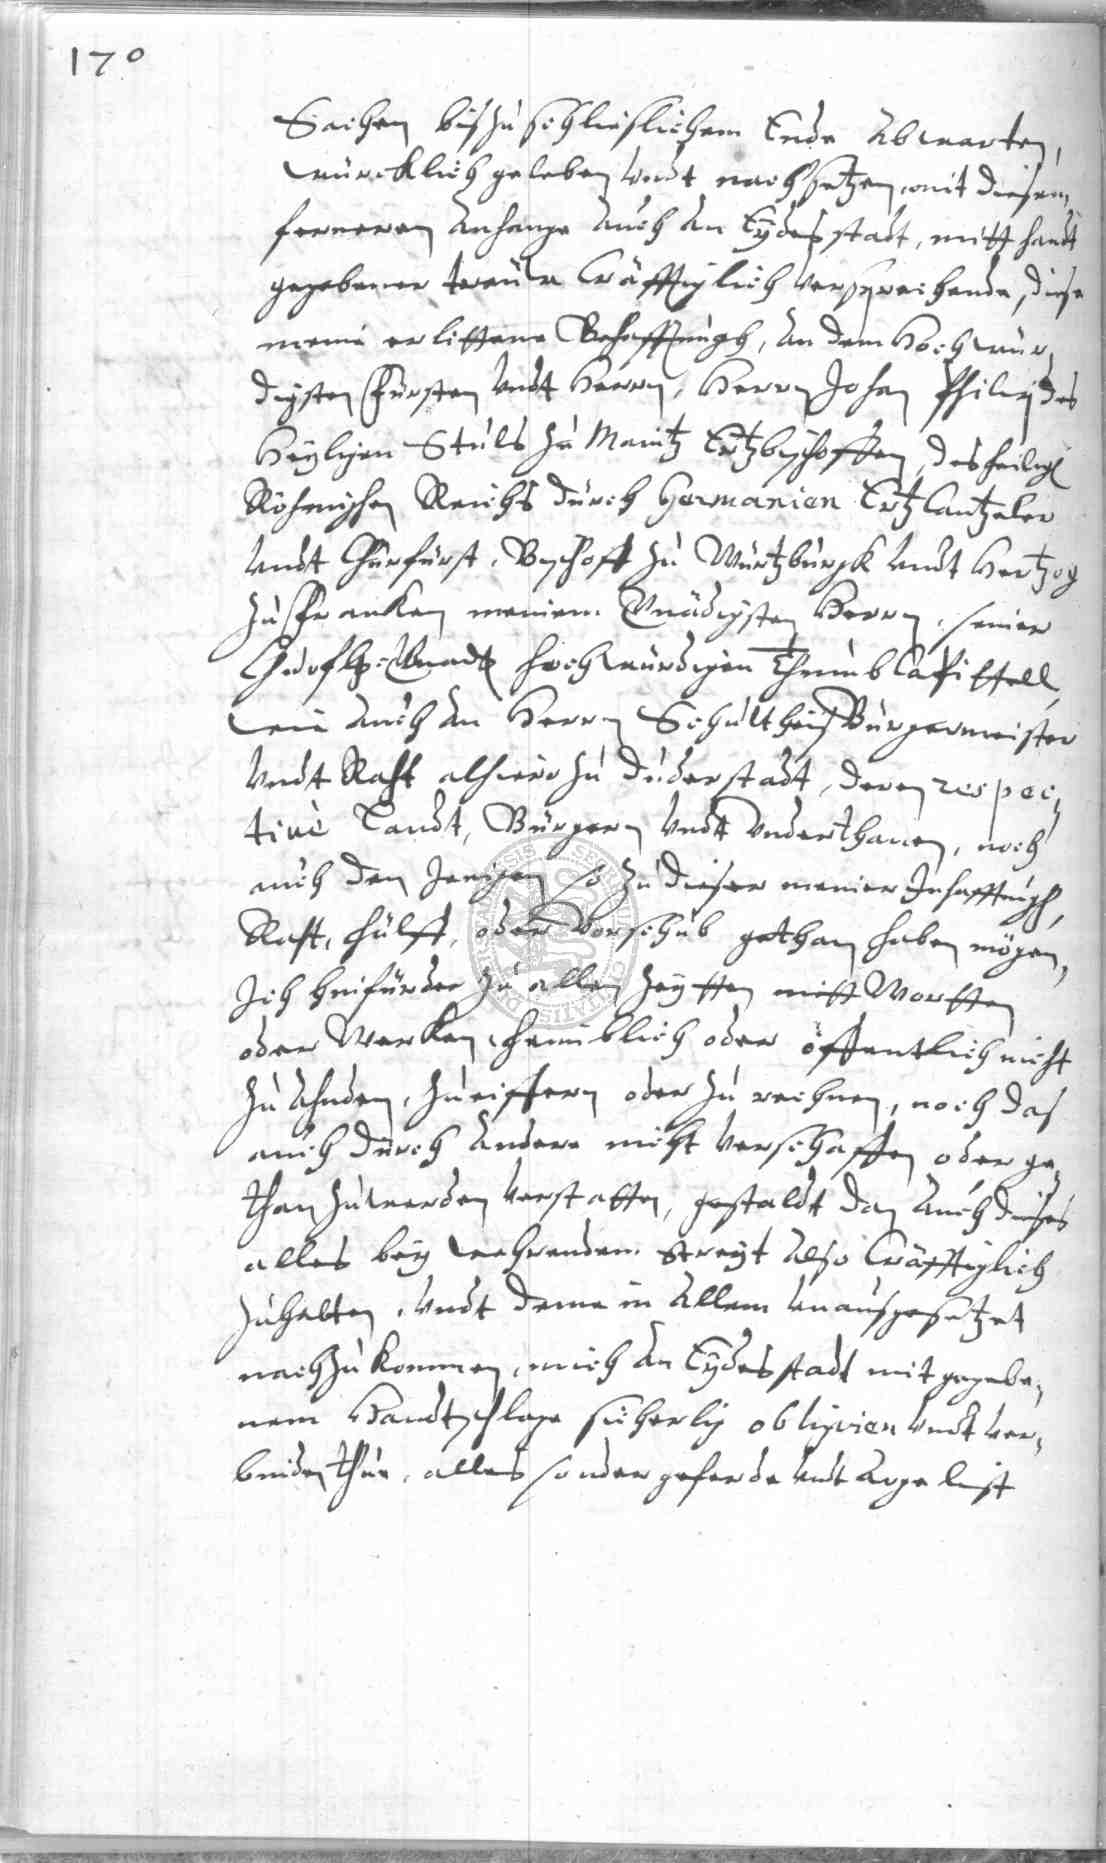 170
Sachen biß zu schließlichem Ende abwarten,
würcklich geleben undt nachsetzen, mit diesem
ferneren anhange auch an Eydes stadt, mitt handt
gegebener treüe Cräfftiglich versprechende, diese
meine erlittene Behafftungh, an dem Hochwür„
digsten Fürsten undt Herrn, Herrn Johan Philip des
Heyligen Stuls zu Maintz Ertzbischoffen, des heilig
Röhmischen Reichs durch Germanien Ertz Cantzeler
undt Churfürst, Bischoff zu Würtzburgk undt Hertzog
zu Francken meinem Gnädigsten Herrn, seiner
Churfl: Gnad hochwürdigen Thumb Capittell,
wie auch an Herrn Schultheiß Bürgermeister
undt Raht alhiero zu Duderstadt, deren respec„
tiuè Landt, Bürgern undt underthanen, noch
auch den Jenigen so zu dieser meiner Inhafftungh,
Raht, hülff, oder Vorschub gethan haben mögen,
Ich hinfürder zu allen Zeytten mitt Wortten
oder Wercken, heimblich oder öffentlich nicht
zu ahnden, zu eiffern oder zu rechnen, noch das
auch durch andere nicht verschaffen oder ge„
than zu werden verstatten, gestaldt dan auch dieses
alles bey wehrendem Streyt also Cräfftiglich
zuhalten, undt deme in allem unausgesetzet
nachzukommen, mich an Eydes stadt mit gegebe„
nem Handtschlage sicherlig obligiren undt ver„
binden thue, alles sonder geferde undt Arge list